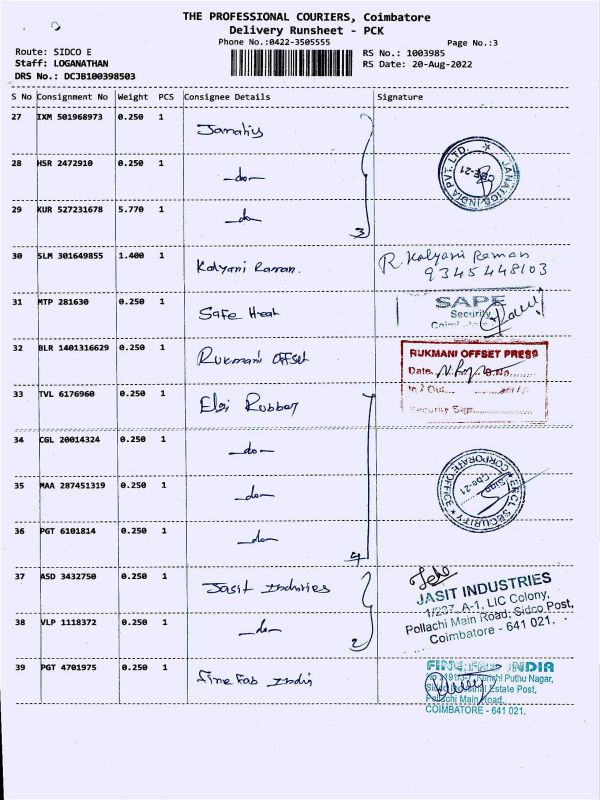 THE PROFESSIONAL COURIERS, Coimbatore
Delivery Runsheet - PCK
Phone No.:0422-3505555
Page No.:3
Route: SIDCO E
RS No.: 1003985
Staff: LOGANATHAN
RS Date: 20-Aug-2022
DRS No.: DCJB100398503
S No Consignment No Weight PCS Consignee Details Signature
27 IXM 501968973 0.250 1 Janatics
28 HSR 2472910 0.250 1 -do-
29 KUR 527231678 5.770 1 -do-
3
JANATICS INDIA PVT. LTD.
CBE-21
30 SLM 301649855 1.400 1 Kalyani Raman.
R. Kalyani Raman
9345448103
31 MTP 281630 0.250 1 Safe Heat
SAPE
Security
32 BLR 1401316629 0.250 1 Rukmani Offset
RUKMANI OFFSET PRESS
Date.
In / Out
Security Sign
33 TVL 6176960 0.250 1 Elgi Rubber
34 CGL 20014324 0.250 1 -do-
35 MAA 287451319 0.250 1 -do-
36 PGT 6101814 0.250 1 -do-
4
CORPORATE OFFICE
ERCL SECURITY
Sign
Cbe-21
37 ASD 3432750 0.250 1 Jasit Industries
38 VLP 1118372 0.250 1 -do-
2
JASIT INDUSTRIES
1/237, A-1, LIC Colony,
Pollachi Main Road, Sidco Post,
Coimbatore - 641 021.
39 PGT 4701975 0.250 1 Fine Fab India
FINE FAB INDIA
Kurichi Puthu Nagar,
Sidco Industrial Estate Post,
Pollachi Main Road,
COIMBATORE - 641 021.